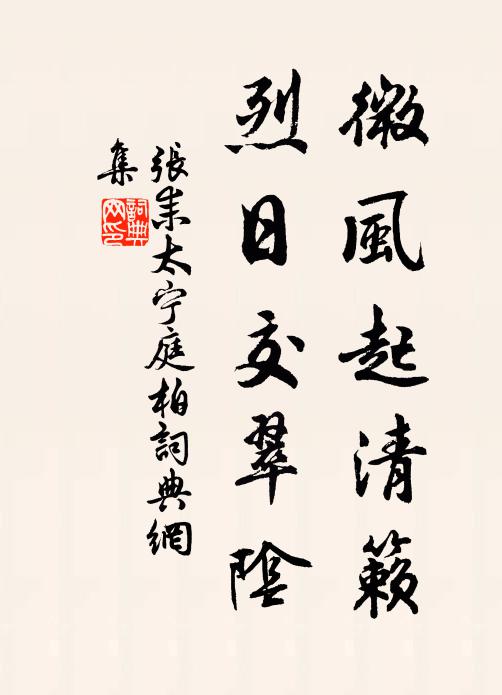 微風起清籟
烈日交翠陰
張耒太寧庭柏詞典網
集
詞典網印